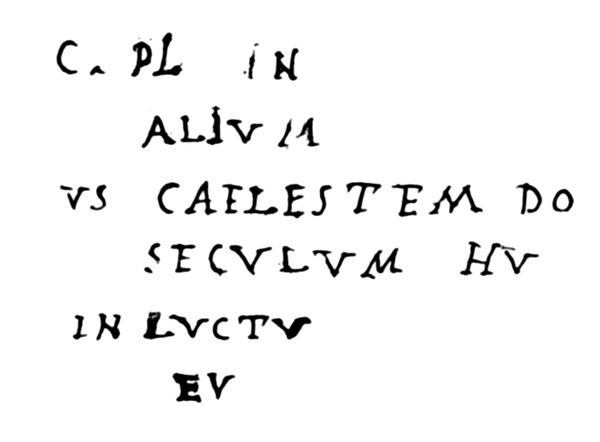 C. PL IN
ALIVM
VS CAELESTEM DO
SECVLVM HV
IN LVCTV
EV